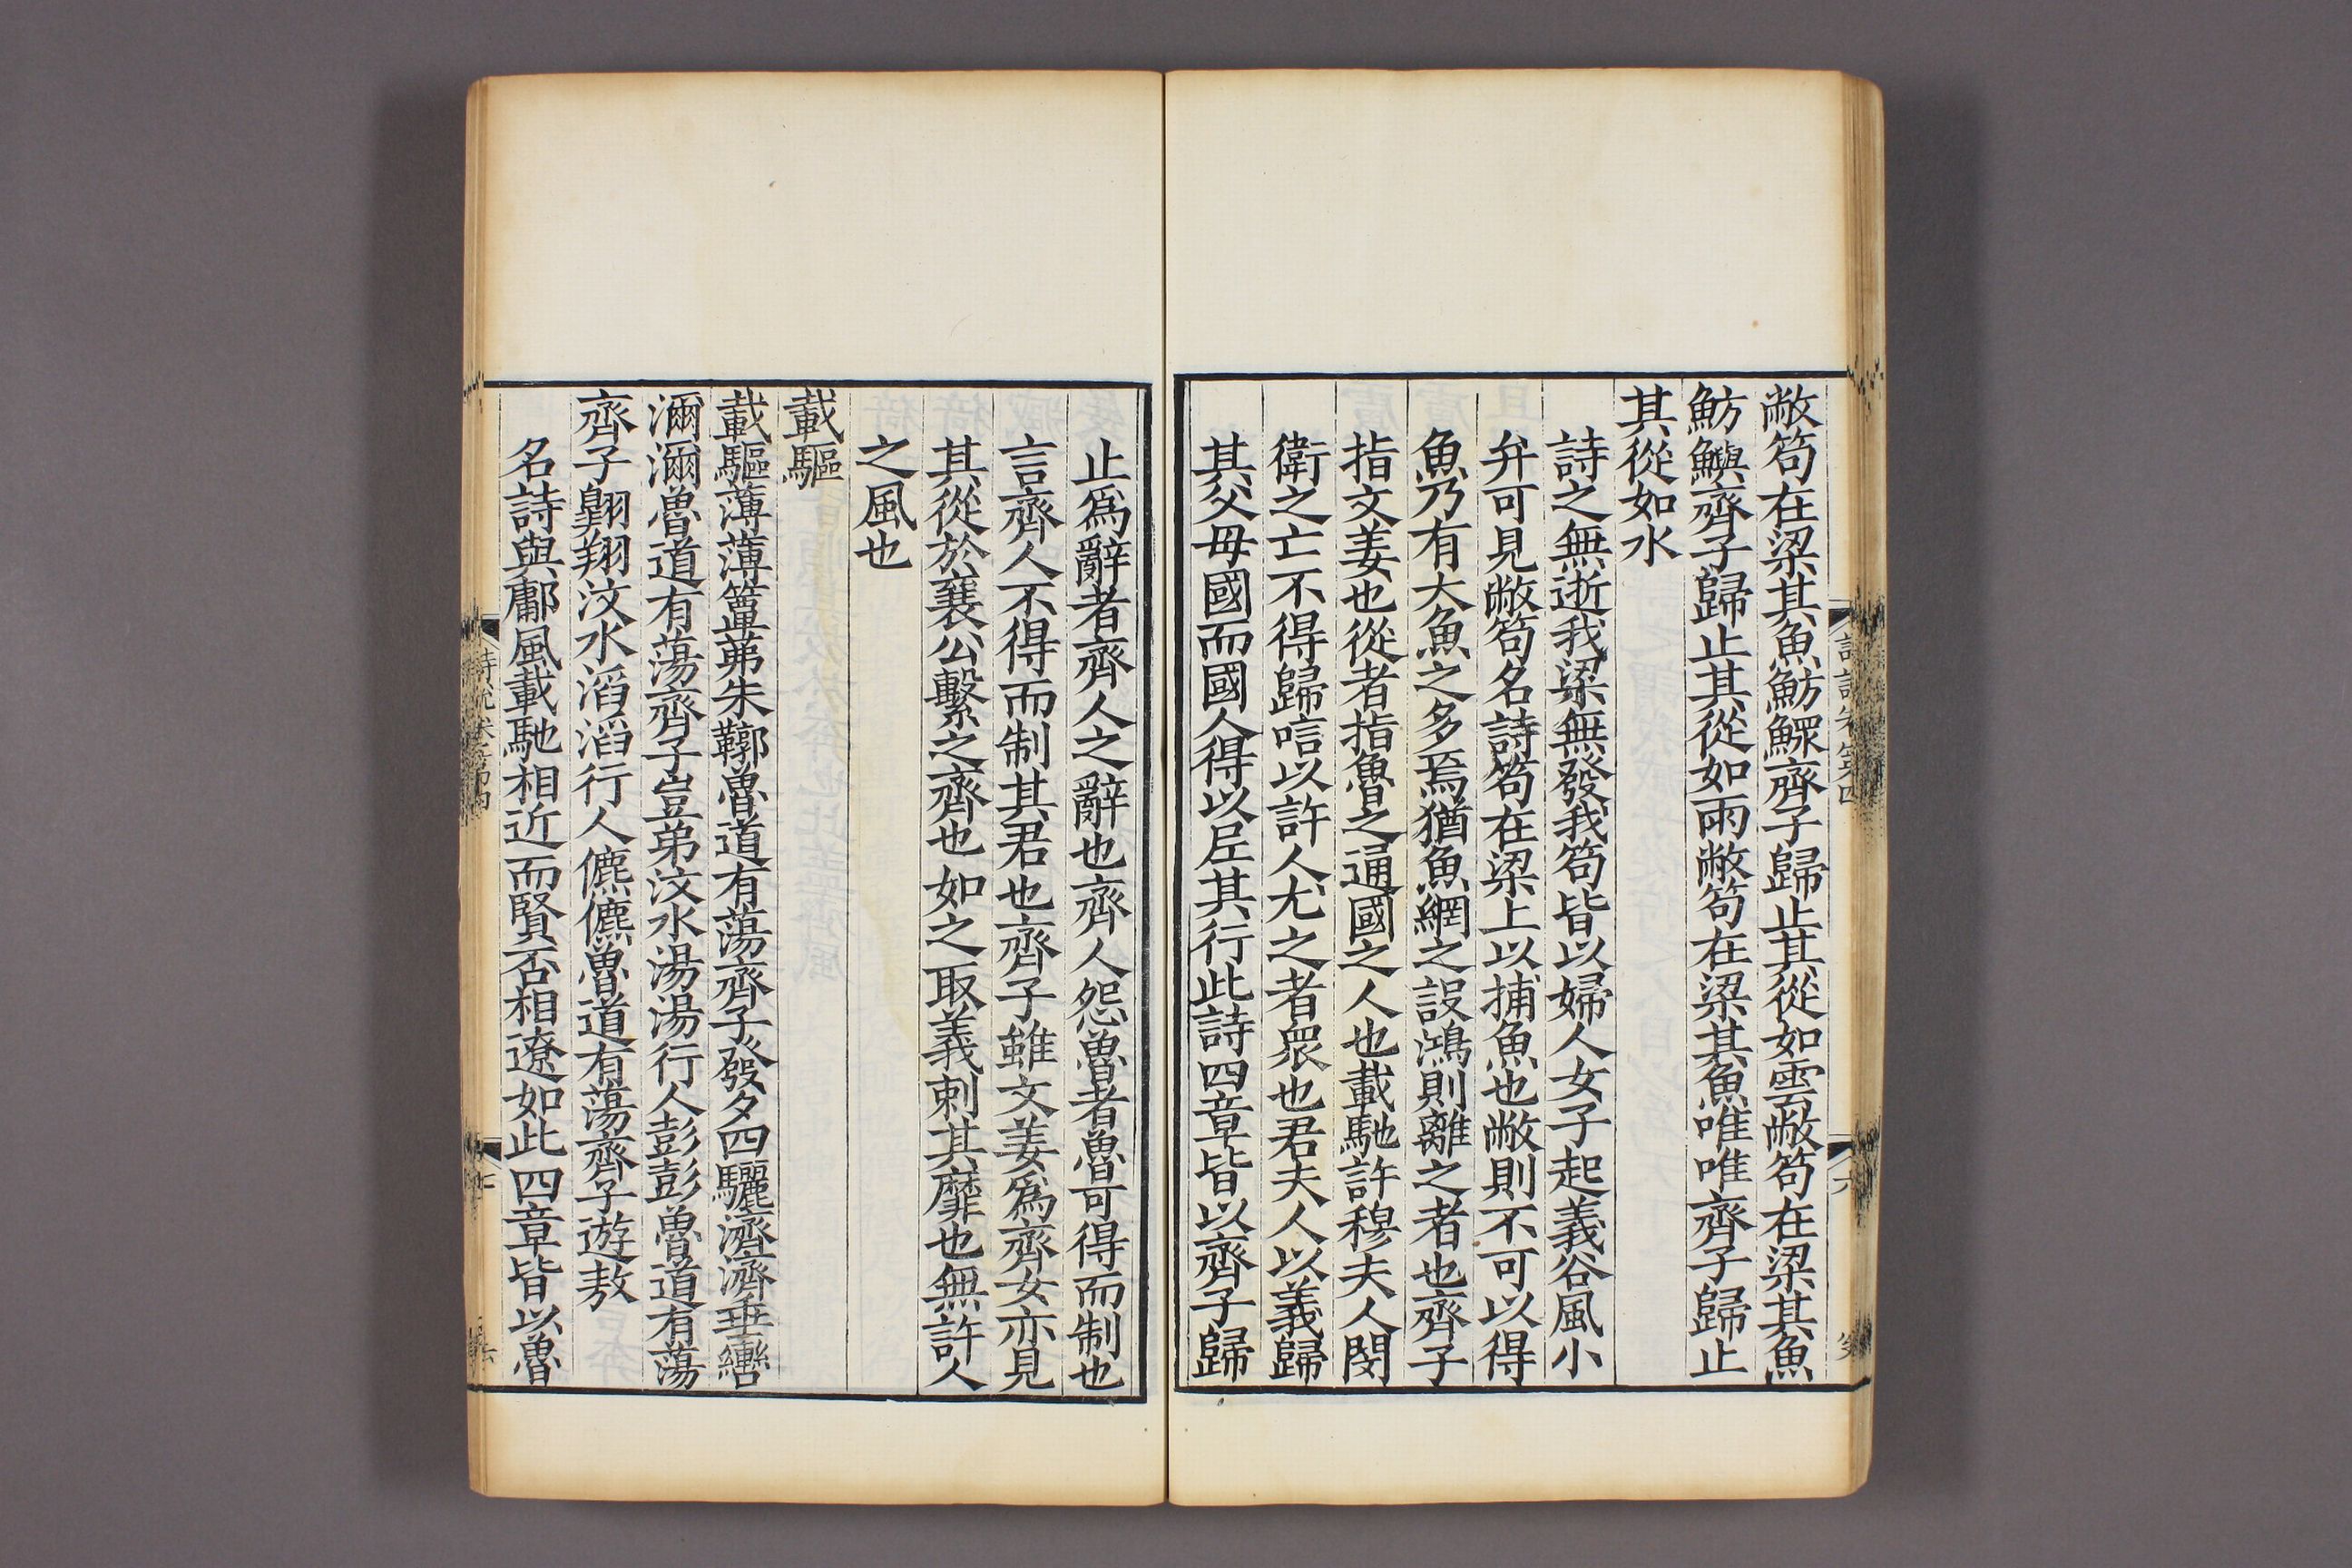 敝笱在梁其魚魴鰥齊子歸止其從如雲敝笱在梁其魚
魴鱮齊子歸止其從如雨敝笱在梁其魚唯唯齊子歸止
其從如水
詩之無逝我梁無發我笱皆以婦人女子起義谷風小
弁可見敝笱名詩笱在梁上以捕魚也敝則不可以得
魚乃有大魚之多焉猶魚網之設鴻則離之者也齊子
指文姜也從者指魯之通國之人也載馳許穆夫人閔
衛之亡不得歸唁以許人尤之者衆也君夫人以義歸
其父母國而國人得以𡰥其行此詩四章皆以齊子歸
止爲辭者齊人之辭也齊人怨魯者魯可得而制也
言齊人不得而制其君也齊子雖文姜爲齊女亦見
其從於襄公繫之齊也如之取義刺其靡也無許人
之風也
載驅
載驅薄薄簟茀朱鞹魯道有蕩齊子發夕四驪濟濟垂轡
濔濔魯道有蕩齊子豈弟汶水湯湯行人彭彭魯道有蕩
齊子翺翔汶水滔滔行人儦儦魯道有蕩齊子遊敖
名詩與鄘風載馳相近而賢否相遼如此四章皆以魯